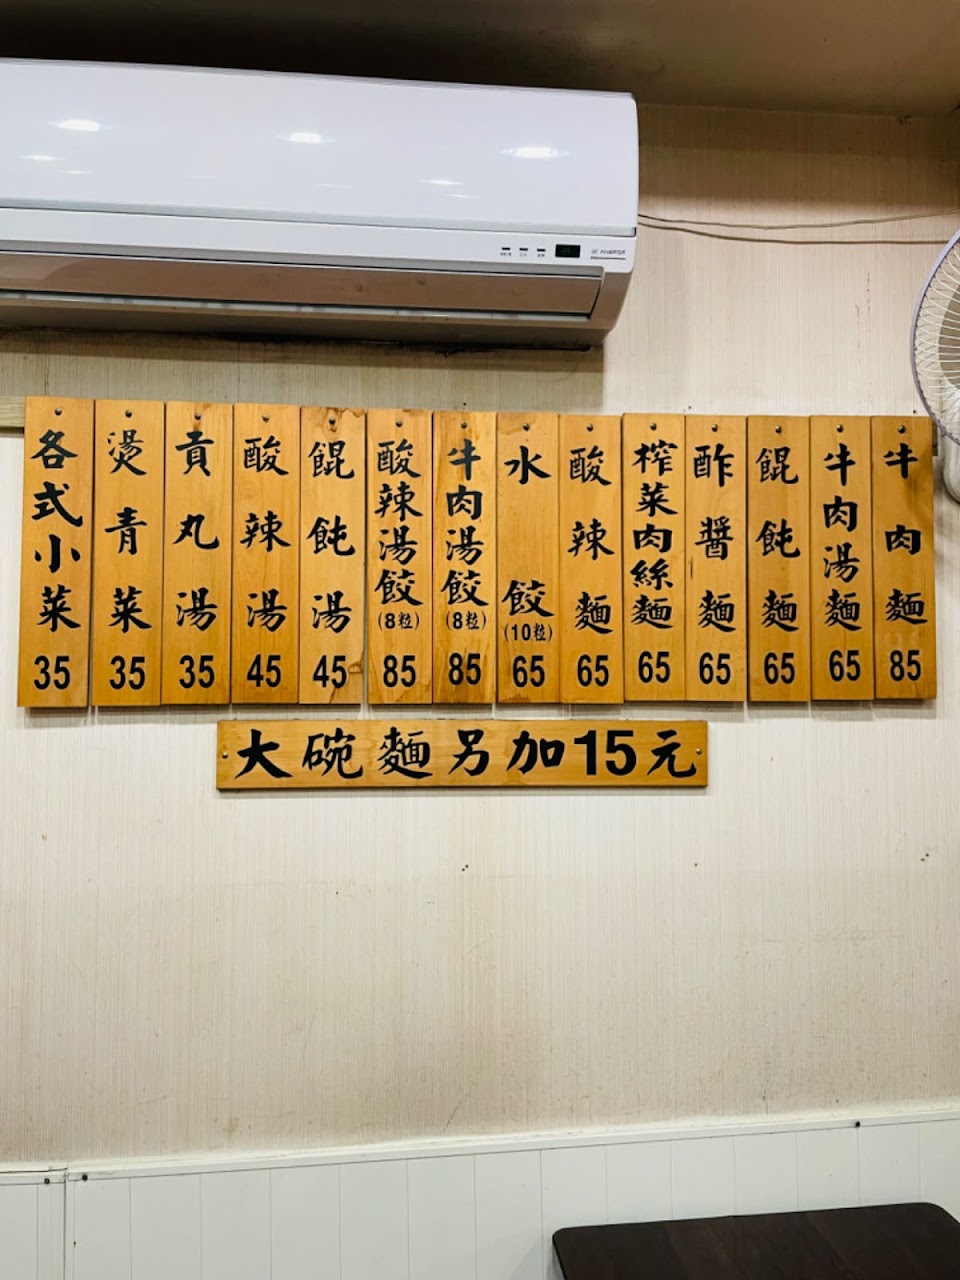 牛肉麵 85
牛肉湯麵 65
餛飩麵 65
酢醬麵 65
榨菜肉絲麵 65
酸辣麵 65
水餃(10粒) 65
牛肉湯餃(8粒) 85
酸辣湯餃(8粒) 85
餛飩湯 45
酸辣湯 45
貢丸湯 35
燙青菜 35
各式小菜 35
大碗麵另加15元
DC INVERTER